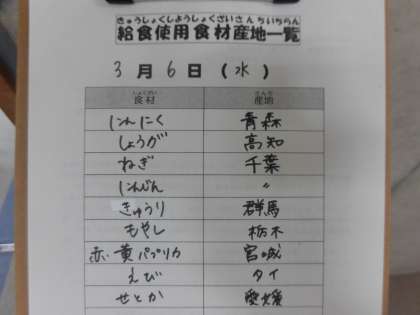 きゅうしょくしようしょくざいさんちいちらん
給食使用食材産地一覧
3月6日(水)
しょくざい さんち
食材 産地
にんにく 青森
しょうが 高知
ねぎ 千葉
にんじん 〃
きゅうり 群馬
もやし 栃木
赤、黄パプリカ 宮城
えび タイ
せとか 愛媛